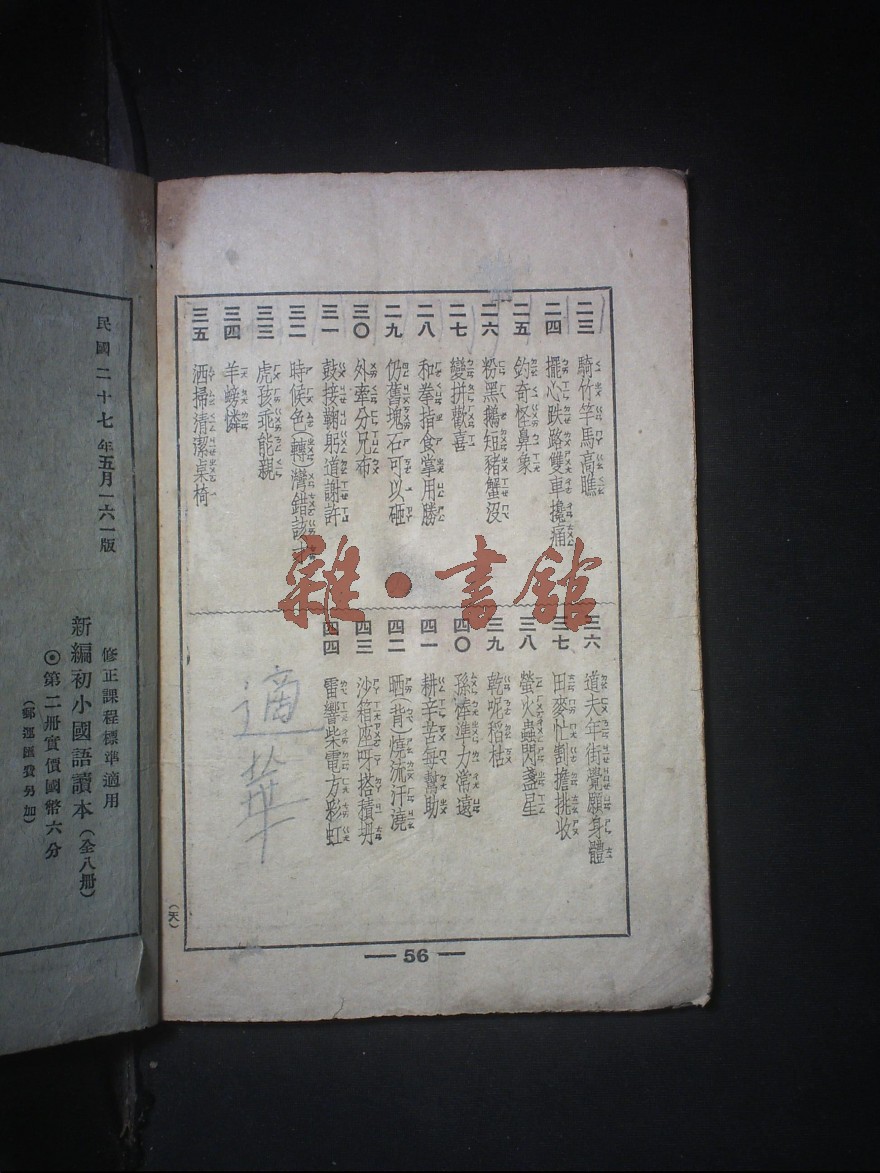 二三 騎竹竿馬高瞧
二四 擺心跌路雙車攙痛
二五 釣奇怪鼻象
二六 粉黑鵝短豬蟹沒
二七 變拼歡喜
二八 和拳指食掌用勝
二九 仍舊塊石可以砸
三〇 外牽分兄布
三一 鼓接鞠躬道謝許
三二 時候色(轉)灣錯該才
三三 虎孩乖能親
三四 羊螃憐
三五 洒掃清潔桌椅
三六 道夫年街覺願身體
三七 田麥忙割擔挑收
三八 螢火蟲閃盞星
三九 乾呢稻枯
四〇 孫棒準力常遠
四一 耕辛苦每幫助
四二 晒(背)燒流汗澆
四三 沙箱座呀搭積
四四 雷響柴電方彩虹
適華
(天)
56
雜·書館
修正課程標準適用
新編初小國語讀本(全八冊)
◎第二冊實價國幣六分
(郵運匯費另加)
民國二十七年五月一六一版